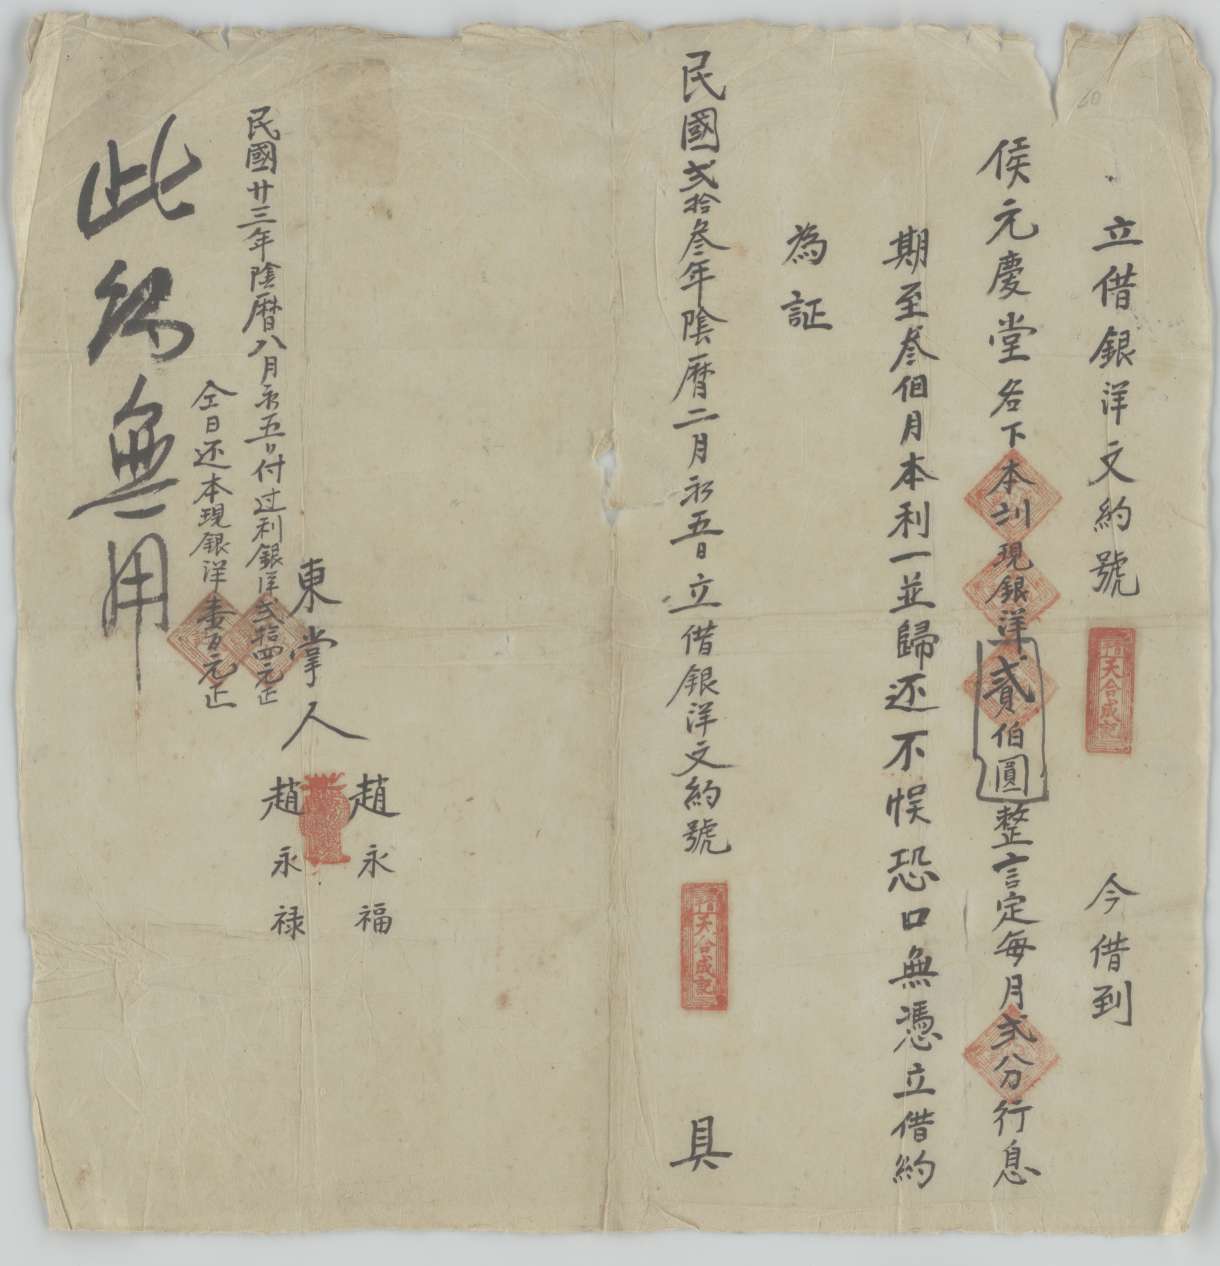 立借銀洋文約號 天合成記 今借到
侯元慶堂名下本訓現銀洋貳伯圓整言定每月弍分行息
期至叁佃月本利一並歸还不悮恐口無憑立借約
為証
民國弍拾叁年陰曆二月初五日立借銀洋文約號 天合成記 具
東掌人
趙永福
趙永禄
民國廿三年陰曆八月初五日付过利銀洋弍拾四元正
仝日还本現銀洋壹百元正
此約無用